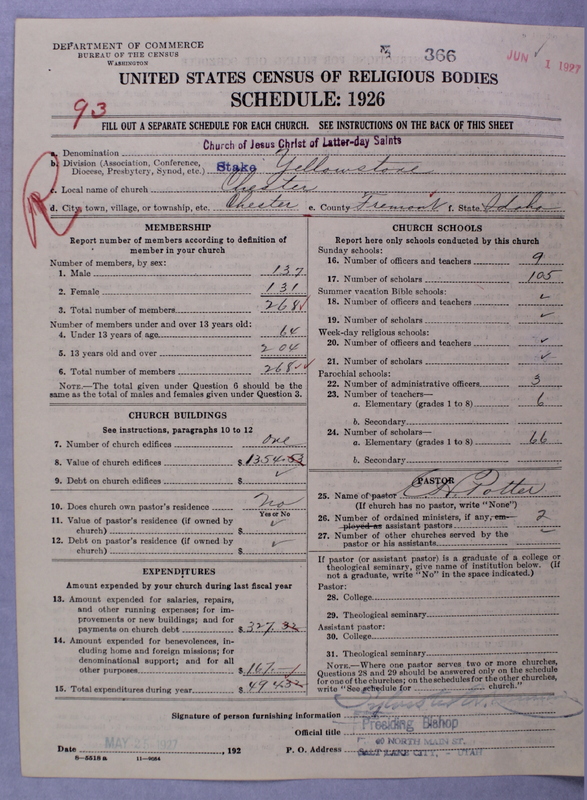 DEPARTMENT OF COMMERCE
BUREAU OF THE CENSUS
WASHINGTON
366
JUN 1 1927
UNITED STATES CENSUS OF RELIGIOUS BODIES
SCHEDULE: 1926
93
FILL OUT A SEPARATE SCHEDULE FOR EACH CHURCH. SEE INSTRUCTIONS ON THE BACK OF THIS SHEET
R
a. Denomination Church of Jesus Christ of Latter-day Saints
b. Division (Association, Conference, Diocese, Presbytery, Synod, etc.) Stake Yellowstone
c. Local name of church Chester
d. City, town, village, or township, etc. Chester e. County Fremont f. State Idaho
MEMBERSHIP
Report number of members according to definition of
member in your church
Number of members, by sex:
1. Male 137
2. Female 131
3. Total number of members 268
Number of members under and over 13 years old:
4. Under 13 years of age 64
5. 13 years old and over 204
6. Total number of members 268
NOTE.—The total given under Question 6 should be
same as the total of males and females given under Question 3.
CHURCH BUILDINGS
See instructions, paragraphs 10 to 12
7. Number of church edifices One
8. Value of church edifices $ 1354.53
9. Debt on church edifices $ ✓
10. Does church own pastor's residence No
Yes or No
11. Value of pastor's residence (if owned by
church) $ ✓
12. Debt on pastor's residence (if owned by
church) $ ✓
EXPENDITURES
Amount expended by your church during last fiscal year
13. Amount expended for salaries, repairs,
and other running expenses; for im-
provements or new buildings; and for
payments on church debt $ 327.32
14. Amount expended for benevolences, in-
cluding home and foreign missions; for
denominational support; and for all
other purposes $ 167.
15. Total expenditures during year $ 494.32
CHURCH SCHOOLS
Report here only schools conducted by this church
Sunday schools:
16. Number of officers and teachers 9
17. Number of scholars 105
Summer vacation Bible schools:
18. Number of officers and teachers ✓
19. Number of scholars ✓
Week-day religious schools:
20. Number of officers and teachers ✓
21. Number of scholars ✓
Parochial schools:
22. Number of administrative officers 3
23. Number of teachers—
a. Elementary (grades 1 to 8) 6
b. Secondary
24. Number of scholars—
a. Elementary (grades 1 to 8) 66
b. Secondary
PASTOR
25. Name of pastor C H. Potter
(If church has no pastor, write "None")
26. Number of ordained ministers, if any, em-
ployed as assistant pastors 2
27. Number of other churches served by the
pastor or his assistants
If pastor (or assistant pastor) is a graduate of a college or
theological seminary, give name of institution below. (If
not a graduate, write "No" in the space indicated.)
Pastor:
28. College
29. Theological seminary
Assistant pastor:
30. College
31. Theological seminary
NOTE.—Where one pastor serves two or more churches,
Questions 28 and 29 should be answered only on the schedule
for one of the churches; on the schedules for the other churches,
write "See schedule for church."
Signature of person furnishing information
Official title Presiding Bishop
Date MAY 27 1927, 192 P. O. Address 40 NORTH MAIN ST.
SALT LAKE CITY, UTAH
8—5518 a 11—9054